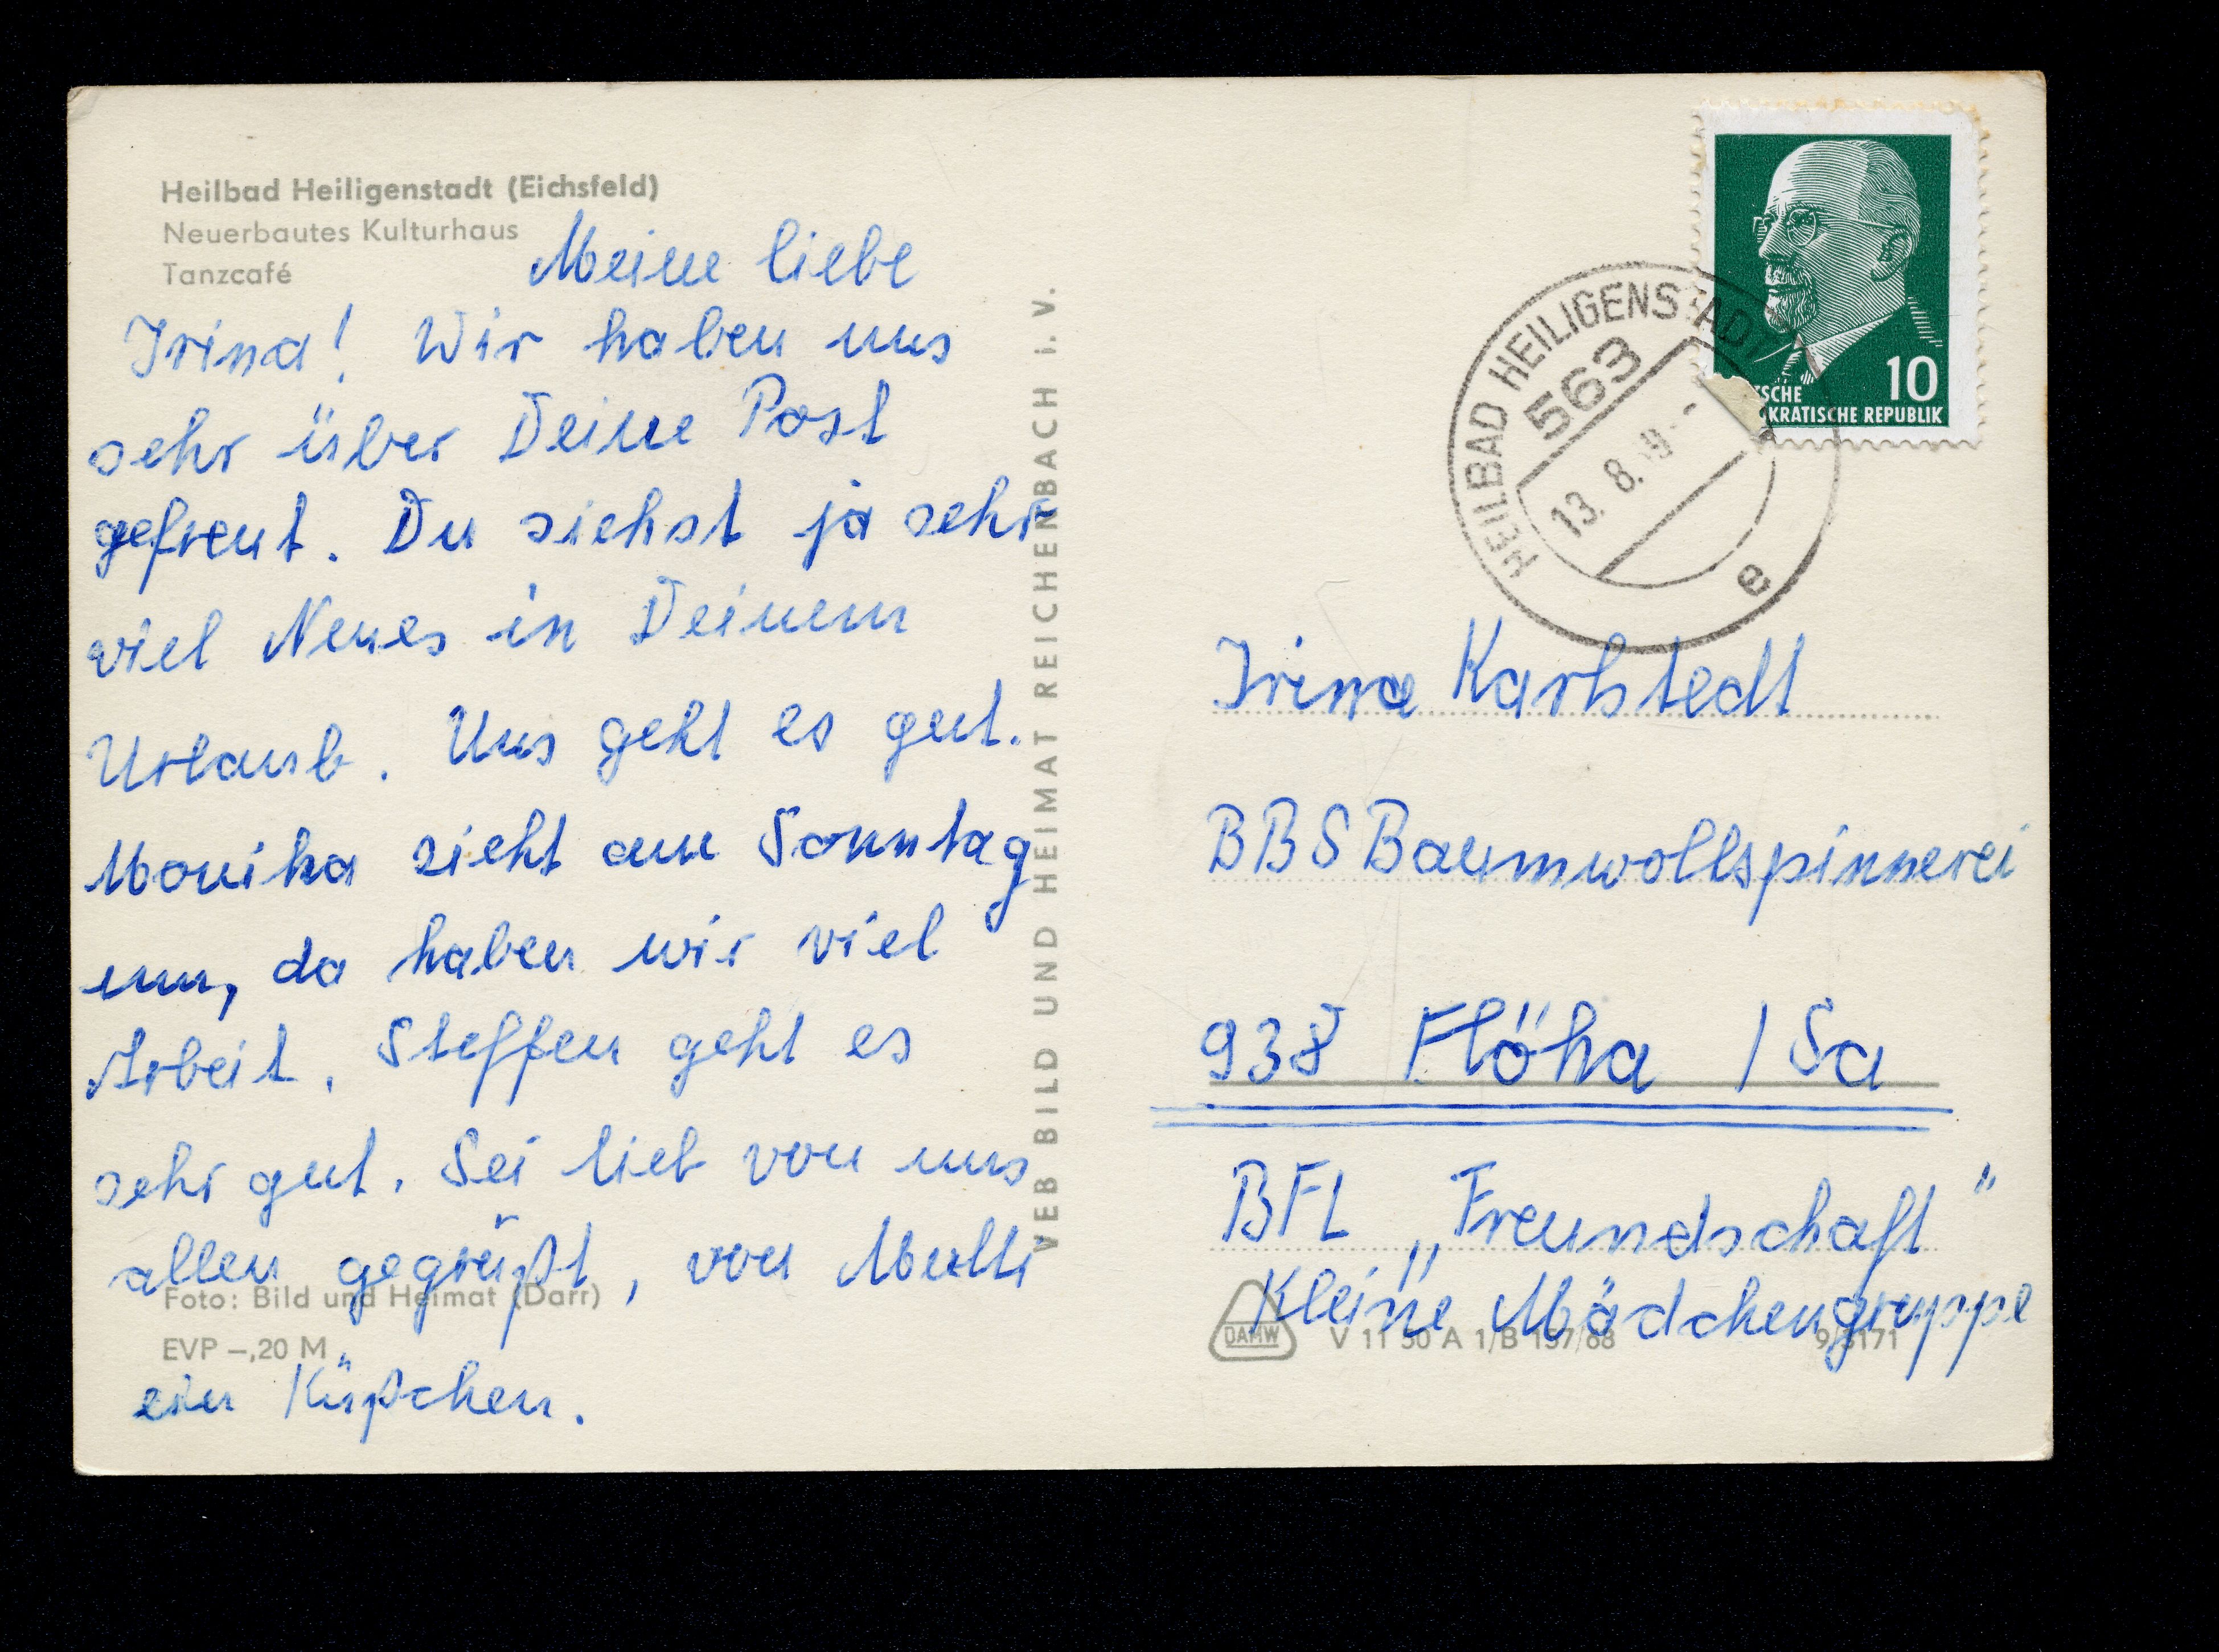 Heilbad Heiligenstadt (Eichsfeld)
Neuerbautes Kulturhaus
Tanzcafé
Meine liebe
Irina! Wir haben uns
sehr über Deine Post
gefreut. Du siehst ja sehr
viel Neues in Deinem
Urlaub. Uns geht es gut.
Monika zieht am Sonntag
um, da haben wir viel
Arbeit. Steffen geht es
sehr gut. Sei lieb von uns
allen gegrüßt, von Mutti
ein Küßchen.
Foto: Bild und Heimat (Darr)
EVP –,20 M
VEB BILD UND HEIMAT REICHENBACH i. V.
10
SCHE
KRATISCHE REPUBLIK
HEILBAD HEILIGENSTADT
563
13. 8.
e
Irina Karlstedt
BBS Baumwollspinnerei
938 Flöha / Sa
BFL „Freundschaft"
Kleine Mädchengruppe
DAMW
V 11 50 A 1/B 157/68